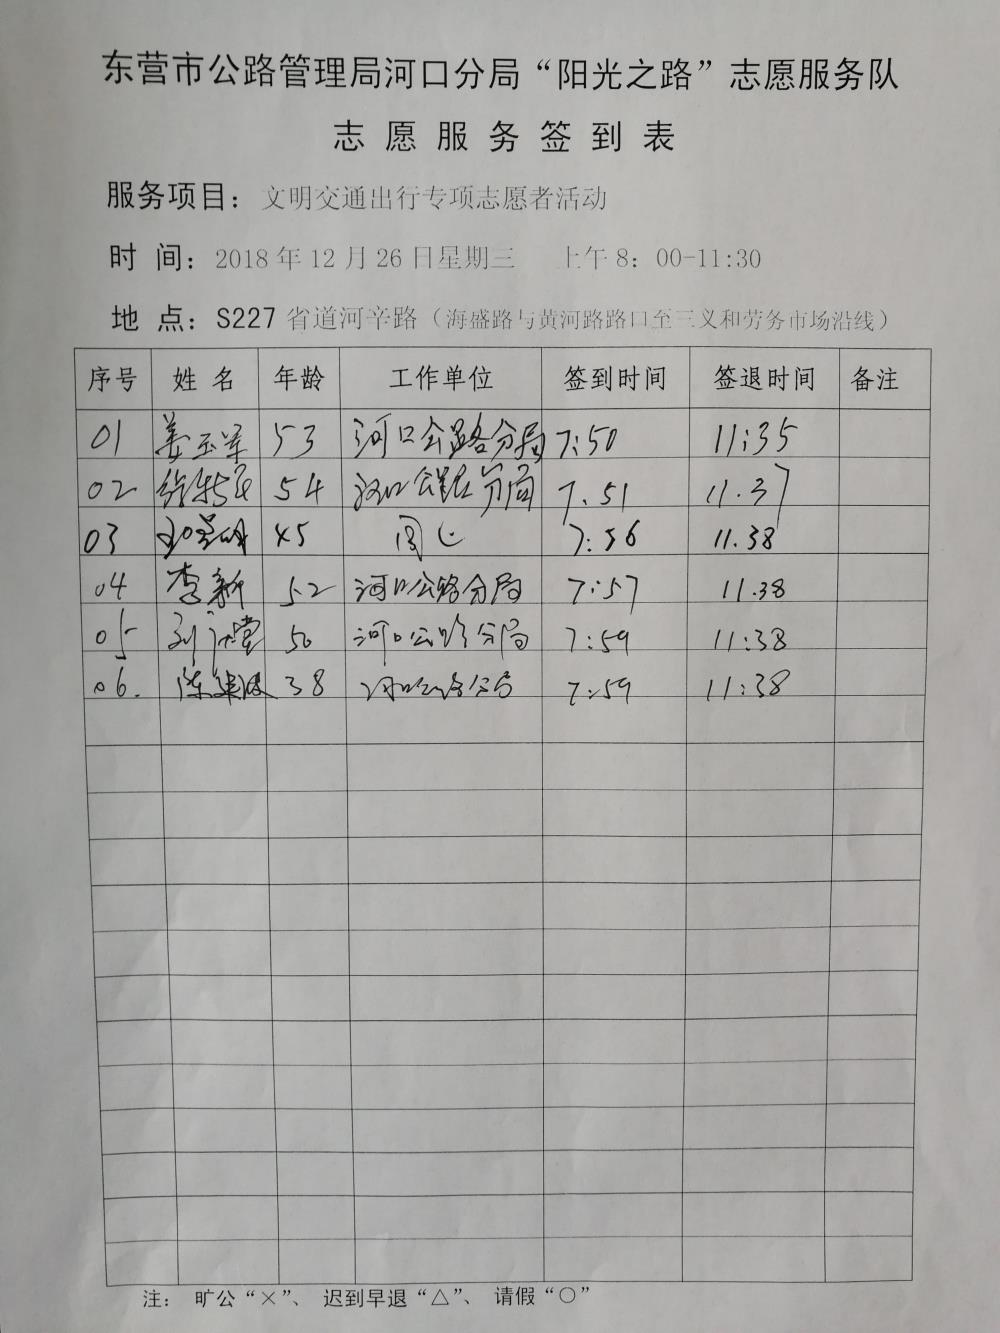 东营市公路管理局河口分局“阳光之路”志愿服务队
志愿服务签到表
服务项目：文明交通出行专项志愿者活动
时 间：2018年12月26日星期三 上午8：00-11:30
地 点：S227省道河辛路（海盛路与黄河路路口至三义和劳务市场沿线）
序号 姓名 年龄 工作单位 签到时间 签退时间 备注
01 姜玉军 53 河口公路分局 7:50 11:35
02 54 河口公路分局 7.51 11.37
03 45 同上 7:56 11.38
04 李新 52 河口公路分局 7:57 11.38
05 刘 堂 50 河口公路分局 7:59 11:38
06. 陈建波 38 河口公路分局 7:59 11:38
注： 旷公“×”、 迟到早退“△”、 请假“○”